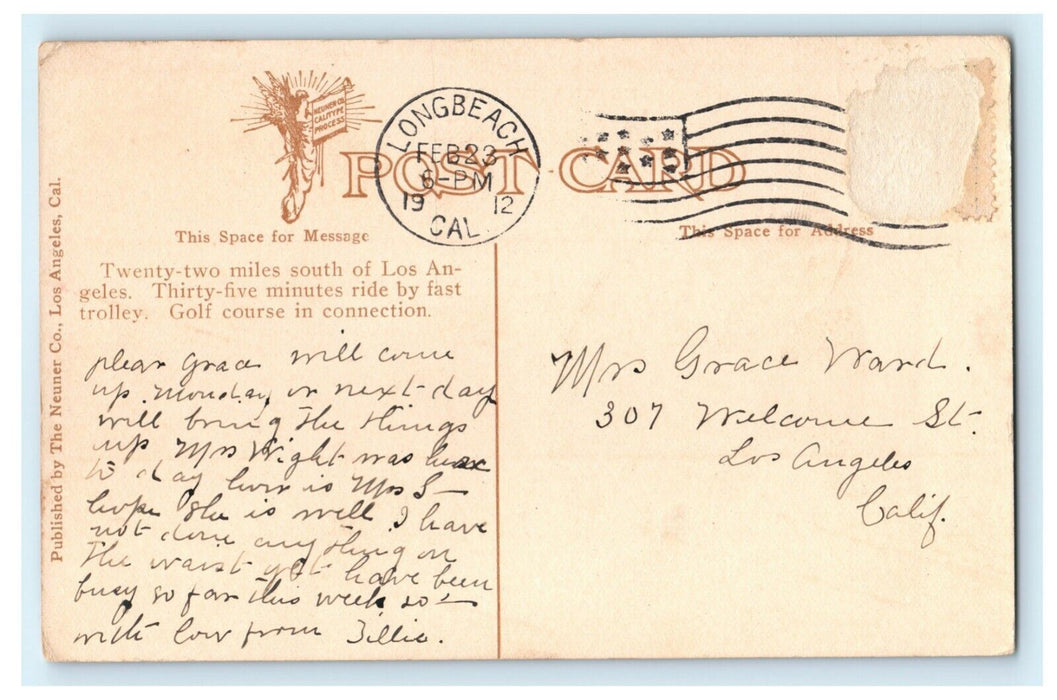 NEUNER CO.
CALITYPE
PROCESS
LONGBEACH
FEB 23
6-PM
19 12
CAL.
POST CARD
This Space for Message
This Space for Address
Twenty-two miles south of Los An-
geles. Thirty-five minutes ride by fast
trolley. Golf course in connection.
Published by The Neuner Co., Los Angeles, Cal.
Dear Grace will come
up Monday or next day
will bring the things
up Mrs Wight was here
to day how is Mrs S—
hope she is well. I have
not done anything on
the waist yet have been
busy so far this week so—
with love from Tillie.
Mrs Grace Ward.
307 Welcome St.
Los Angeles
Calif.